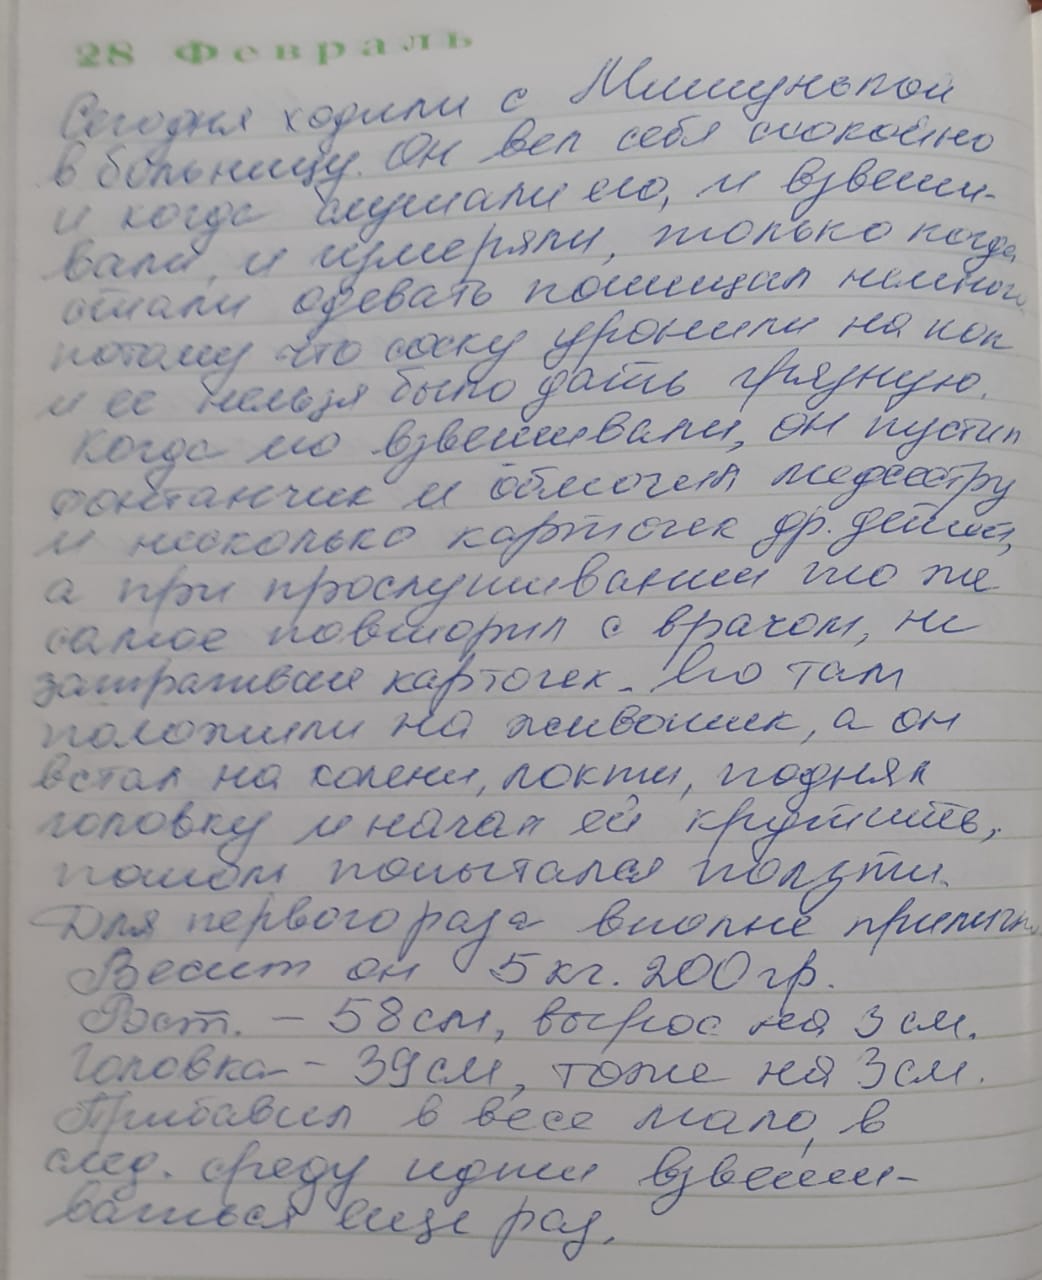 28 Февраль
Сегодня ходили с Мишунькой
в больницу. Он вел себя спокойно
и когда слушали его, и взвеши-
вали, и измеряли, только когда
стали одевать попищал немного
потому что соску уронили на пол
и ее нельзя было дать грязную.
Когда его взвешивали, он пустил
фонтанчик и обмочил медсестру
и несколько карточек др. детей,
а при прослушивании то же
самое повторил с врачом, не
затрагивая карточек. Его там
положили на животик, а он
встал на колени, локти, поднял
головку и начал ей крутить,
потом попытался ползти.
Для первого раза вполне прилично
Весит он 5 кг. 200 гр.
Рост. - 58 см, вырос на 3 см.
Головка - 39 см, тоже на 3 см.
Прибавил в весе мало, в
след. среду идти взвеши-
ваться еще раз.